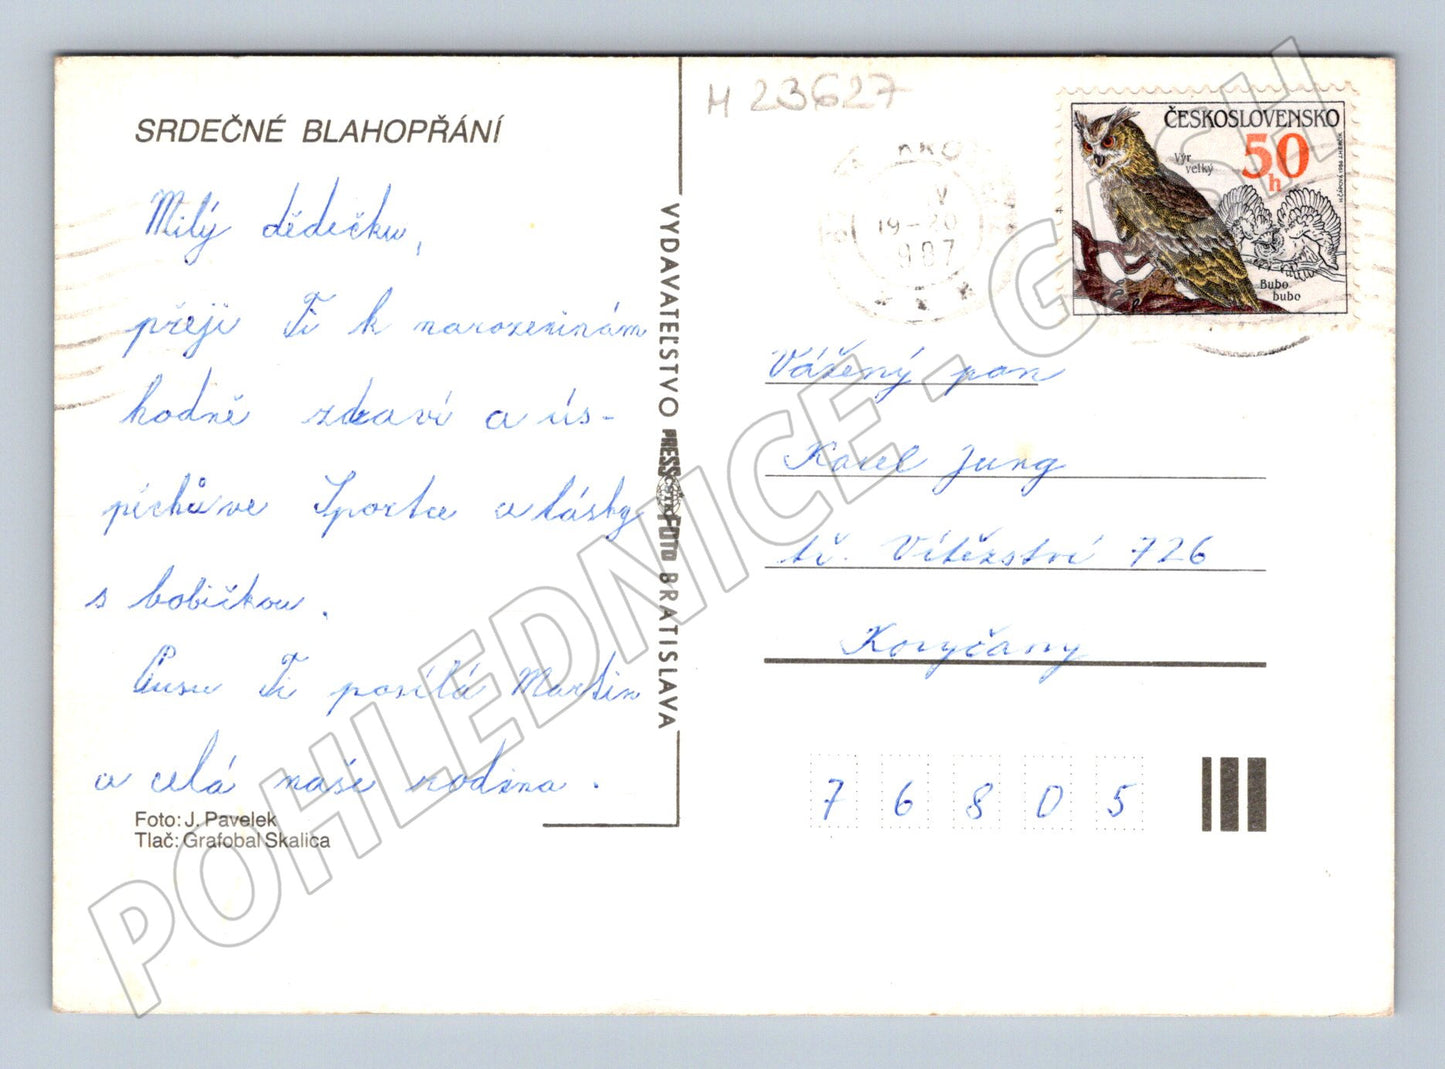 SRDEČNÉ BLAHOPŘÁNÍ
Milý dědečku,
přeji Ti k narozeninám
hodně zdraví a ús-
pěchů ve Sportce a lásky
s babičkou.
Pusu Ti posílá Martin
a celá naše rodina.
Foto: J. Pavelek
Tlač: Grafobal Skalica
VYDAVATEĽSTVO PRESSFOTO BRATISLAVA
M 23627
19-20
V
987
ČESKOSLOVENSKO
50 h
Výr
velký
Bubo
bubo
Vážený pan
Karel Jung
tř. Vítězství 726
Koryčany
7 6 8 0 5
POHLEDNICE - GASH